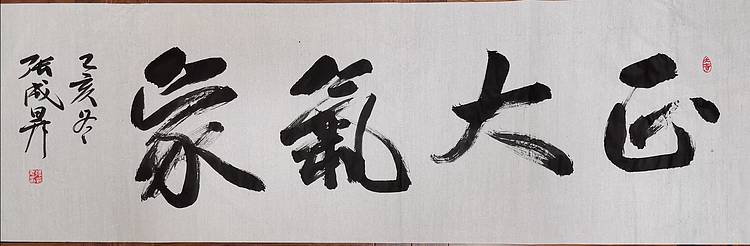 正大氣象
己亥冬
张成昇